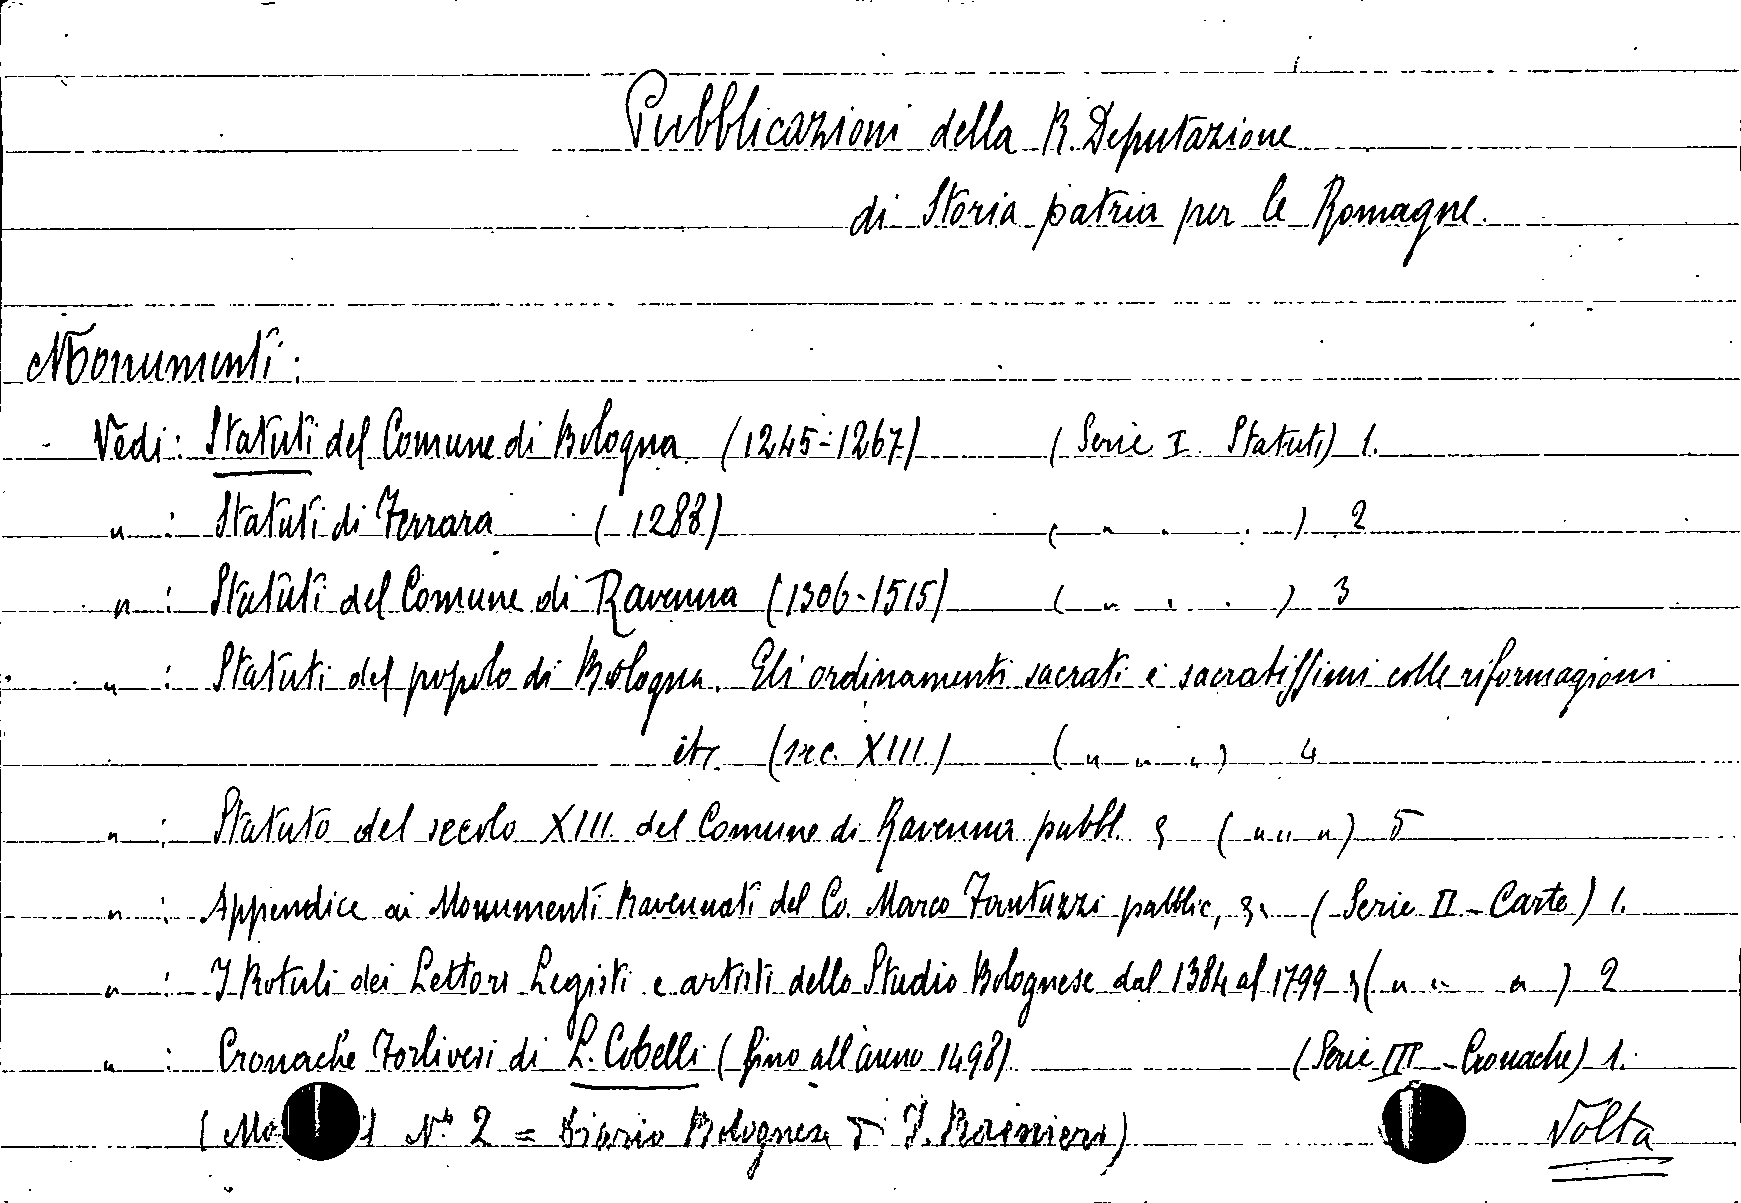 Pubblicazioni della R. Deputazione
di Storia patria per le Romagne.
Monumenti:
Vedi: Statuti del Comune di Bologna (1245-1267) (Serie I Statuti) 1.
" : Statuti di Ferrara (1288) ( " " " ) 2
" : Statuti del Comune di Ravenna (1306-1515) ( " " " ) 3
" : Statuti del popolo di Bologna. Gli ordinamenti sacrati e sacratissimi colle riformagioni
etc. (sec. XIII) ( " " " ) 4
" : Statuto del secolo XIII del Comune di Ravenna pubbl. ( " " " ) 5
" : Appendice ai Monumenti Ravennati del Co. Marco Fantuzzi pubblic, (Serie II - Carte) 1.
" : I Rotuli dei Lettori Legisti e artisti dello Studio Bolognese dal 1384 al 1799 ( " " " ) 2
" : Cronache Forlivesi di L. Cobelli (fino all'anno 1498) (Serie III - Cronache) 1.
N° 2 = Diario Bolognese di J. Rainieri)
Volta